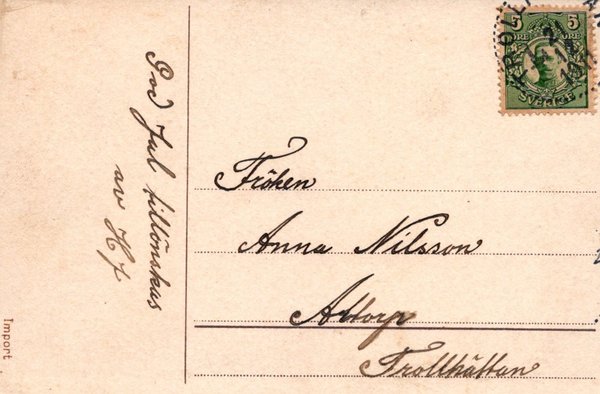 God Jul tillönskas
av HJ
Fröken
Anna Nilsson
Attorp
Trollhättan
5 5
ÖRE ÖRE
SVERIGE
Import